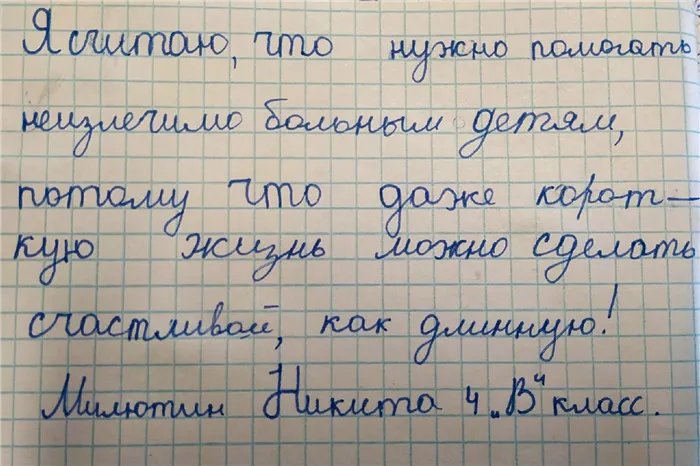 Я считаю, что нужно помогать
неизлечимо больным детям,
потому что даже корот-
кую жизнь можно сделать
счастливой, как длинную!
Милютин Никита 4 „В" класс.